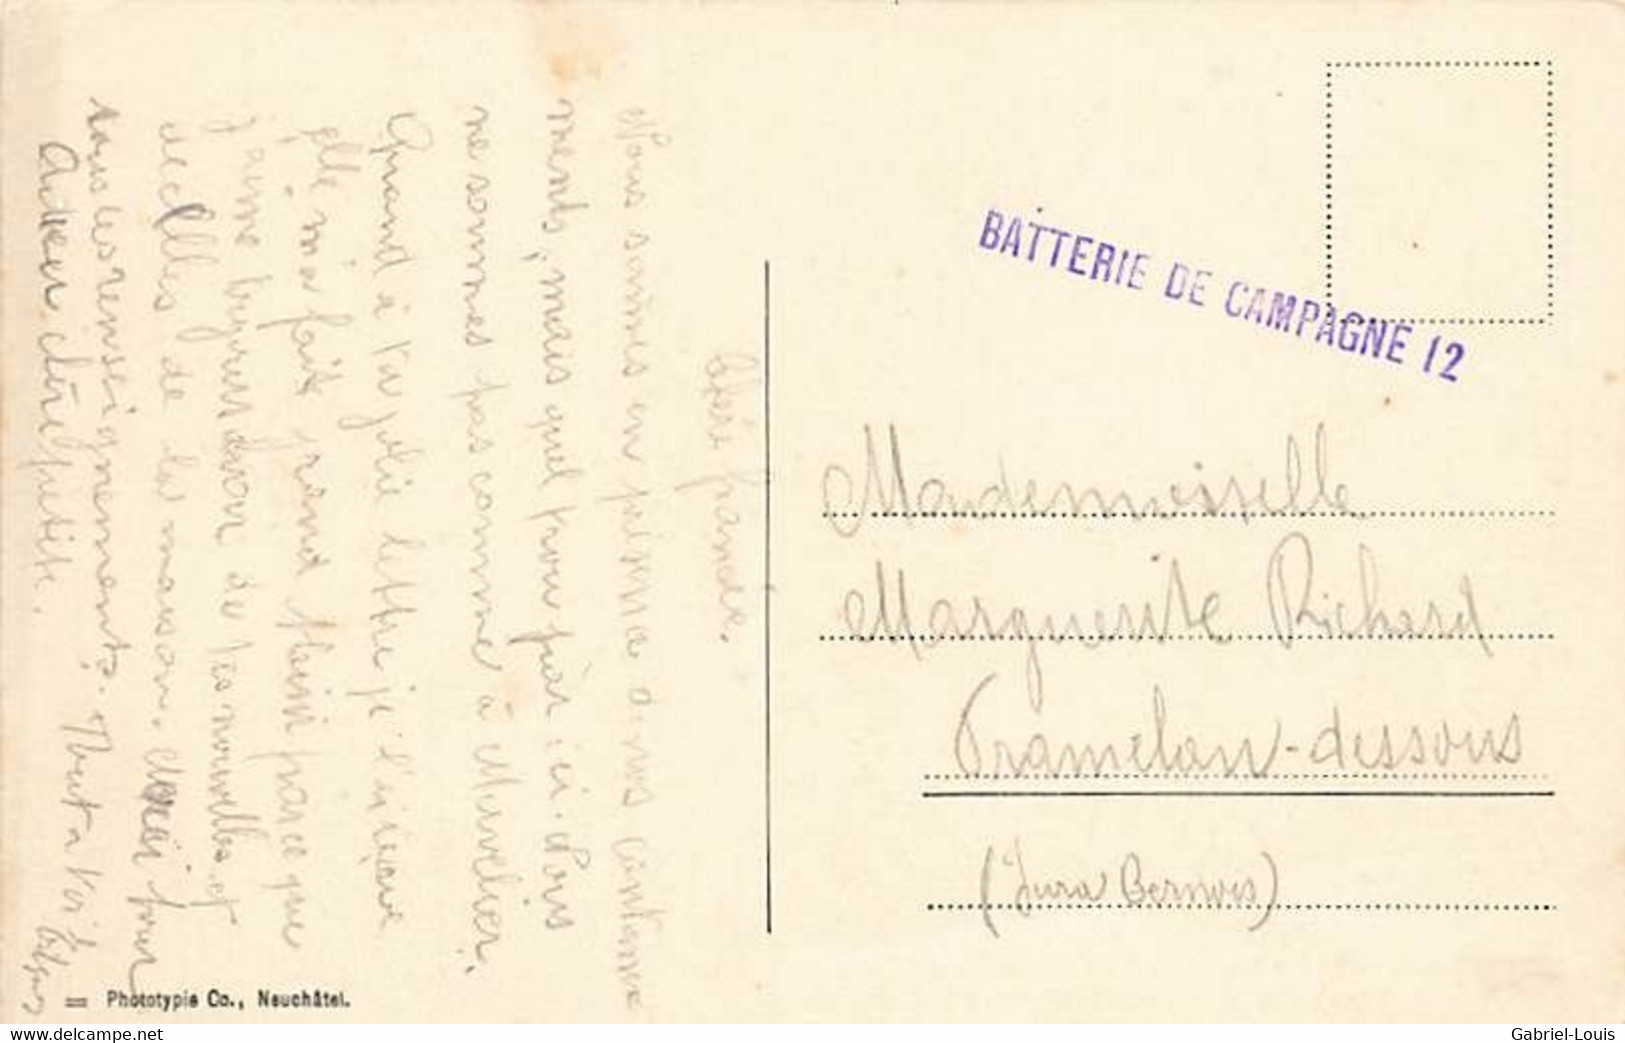 Chère fiancée.
Nous sommes en pleine dans nos cantonne
ments, mais quel trou par ici. Pois
ne sommes pas comme à Muvelier.
Quand à ta jolie lettre je l'ai reçue
elle m'a fait grand plaisir parce que
j'aime toujours avoir de tes nouvelles et
de celles de la maison. Merci pour
tous les renseignements.
Adieu chère petite.
BATTERIE DE CAMPAGNE 12
Mademoiselle
Marguerite Richard
Tramelan-dessous
(Jura Bernois)
= Phototypie Co., Neuchâtel.
www.delcampe.net
Gabriel-Louis